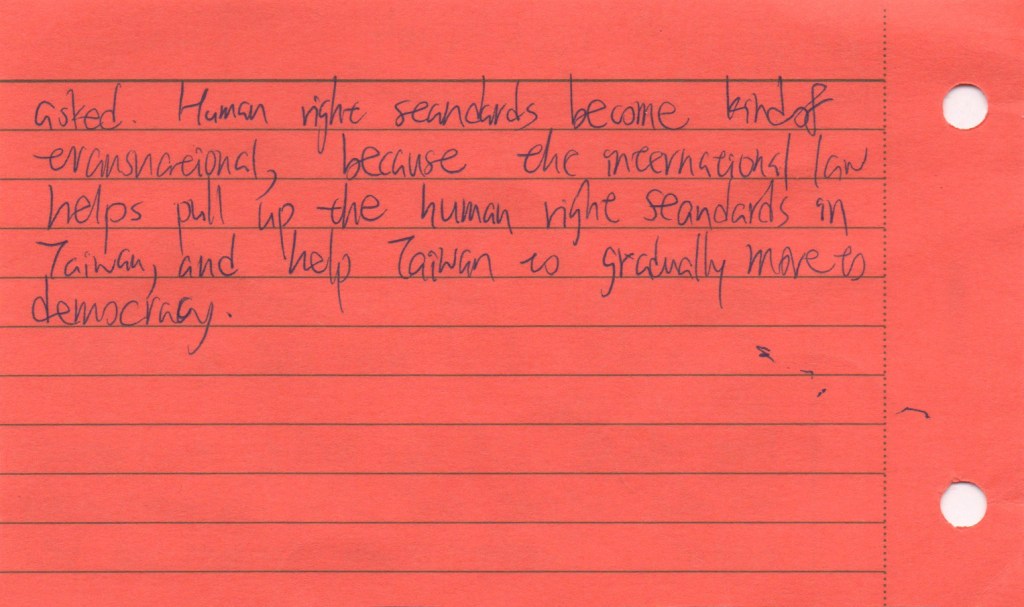 asked. Human right standards become kind of
transnational, because the international law
helps pull up the human right standards in
Taiwan, and help Taiwan to gradually move to
democracy.